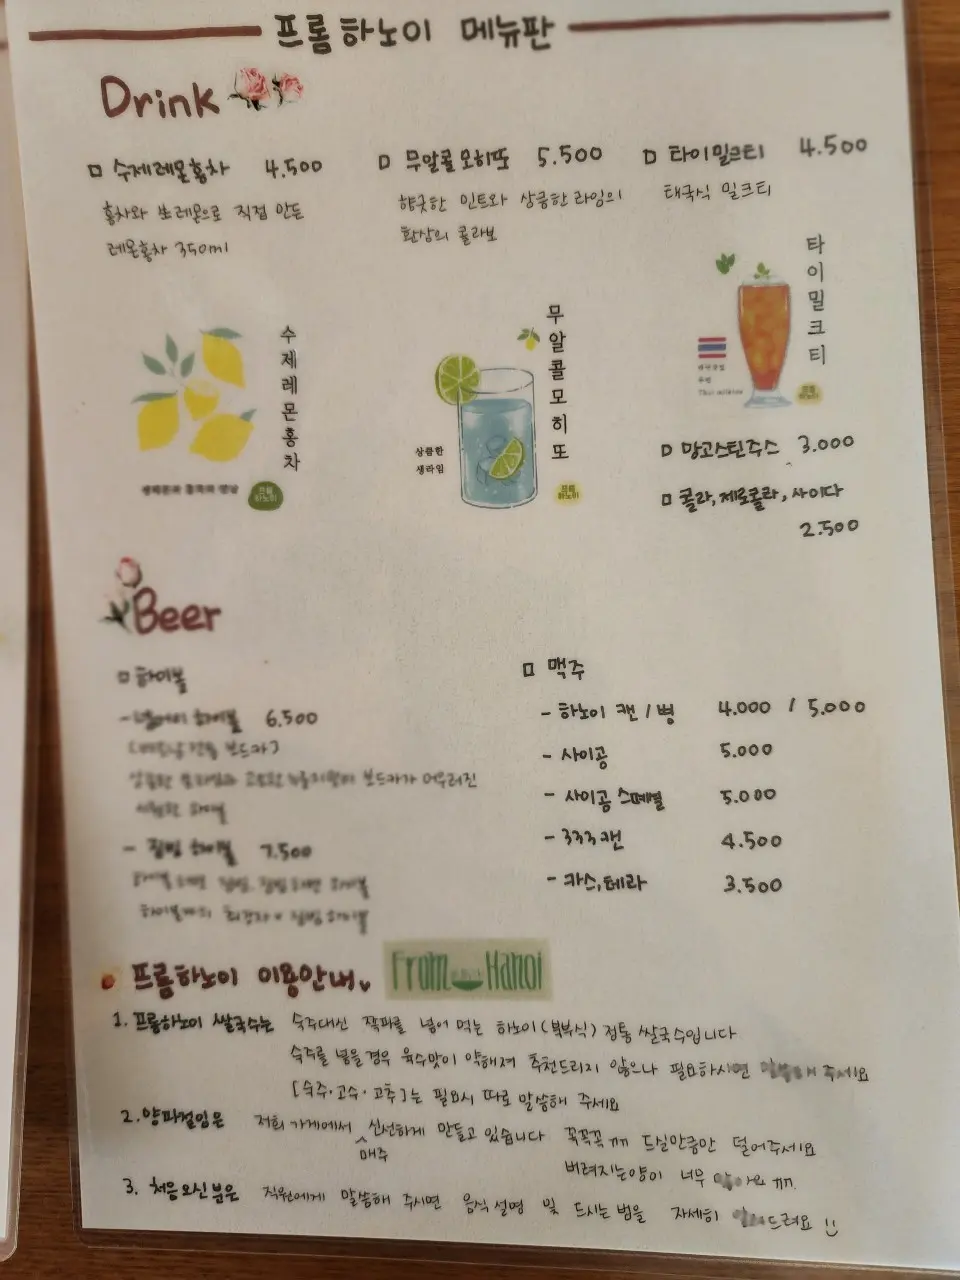 프롬하노이 메뉴판
Drink
수제레몬홍차 4.500
홍차와 생레몬으로 직접 만든
레몬홍차 350ml
무알콜모히또 5.500
향긋한 민트와 상큼한 라임의
환상의 콜라보
타이밀크티 4.500
태국식 밀크티
수제레몬홍차
프롬
하노이
무알콜모히또
상큼한
생라임
프롬
하노이
타이밀크티
프롬
하노이
망고스틴주스 3.000
콜라, 제로콜라, 사이다
2.500
Beer
하이볼
- 하이볼 6.500
보드카
보드카가 어우러진
- 하이볼 7.500
맥주
- 하노이 캔 / 병 4.000 / 5.000
- 사이공 5.000
- 사이공 스페셜 5.000
- 333캔 4.500
- 카스, 테라 3.500
프롬하노이 이용안내
From Hanoi
1. 프롬하노이 쌀국수는 숙주대신 쪽파를 넣어 먹는 하노이(북부식) 정통 쌀국수입니다
숙주를 넣을경우 육수맛이 약해져 추천드리지 않으나 필요하시면 말씀해 주세요
[숙주·고수·고추]는 필요시 따로 말씀해 주세요
2. 양파절임은 저희 가게에서 매주 신선하게 만들고 있습니다 꼭꼭꼭 ㅠㅠ 드실만큼만 덜어주세요
버려지는양이 너무 많아요 ㅠㅠ
3. 처음오신분은 직원에게 말씀해 주시면 음식설명 및 드시는 법을 자세히 드려요 :)